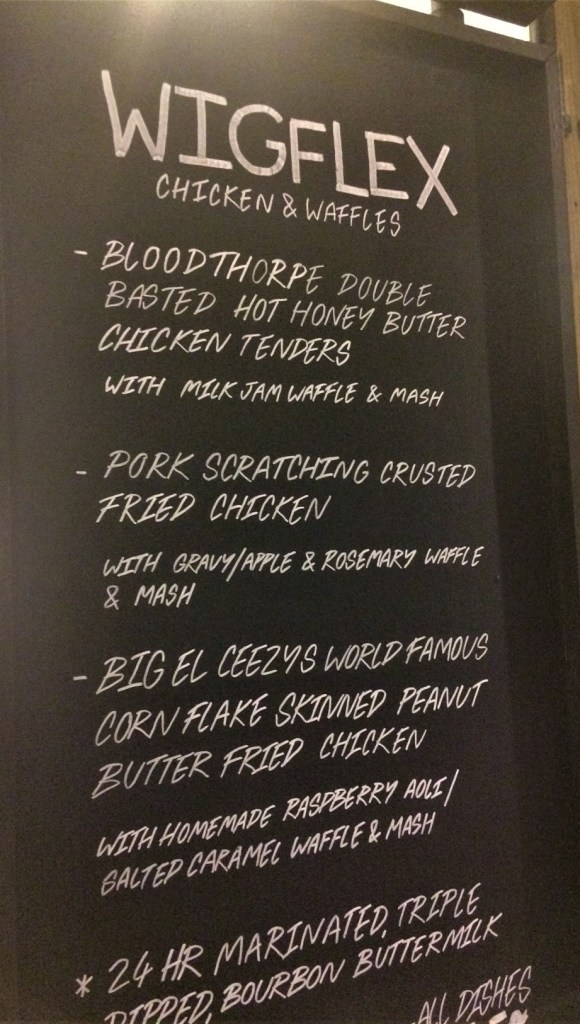 WIGFLEX
CHICKEN & WAFFLES
- BLOODTHORPE DOUBLE
BASTED HOT HONEY BUTTER
CHICKEN TENDERS
WITH MILK JAM WAFFLE & MASH
- PORK SCRATCHING CRUSTED
FRIED CHICKEN
WITH GRAVY/APPLE & ROSEMARY WAFFLE
& MASH
- BIG EL CEEZYS WORLD FAMOUS
CORN FLAKE SKINNED PEANUT
BUTTER FRIED CHICKEN
WITH HOMEMADE RASPBERRY AOLI/
SALTED CARAMEL WAFFLE & MASH
* 24 HR MARINATED, TRIPLE
DIPPED, BOURBON BUTTERMILK
ALL DISHES